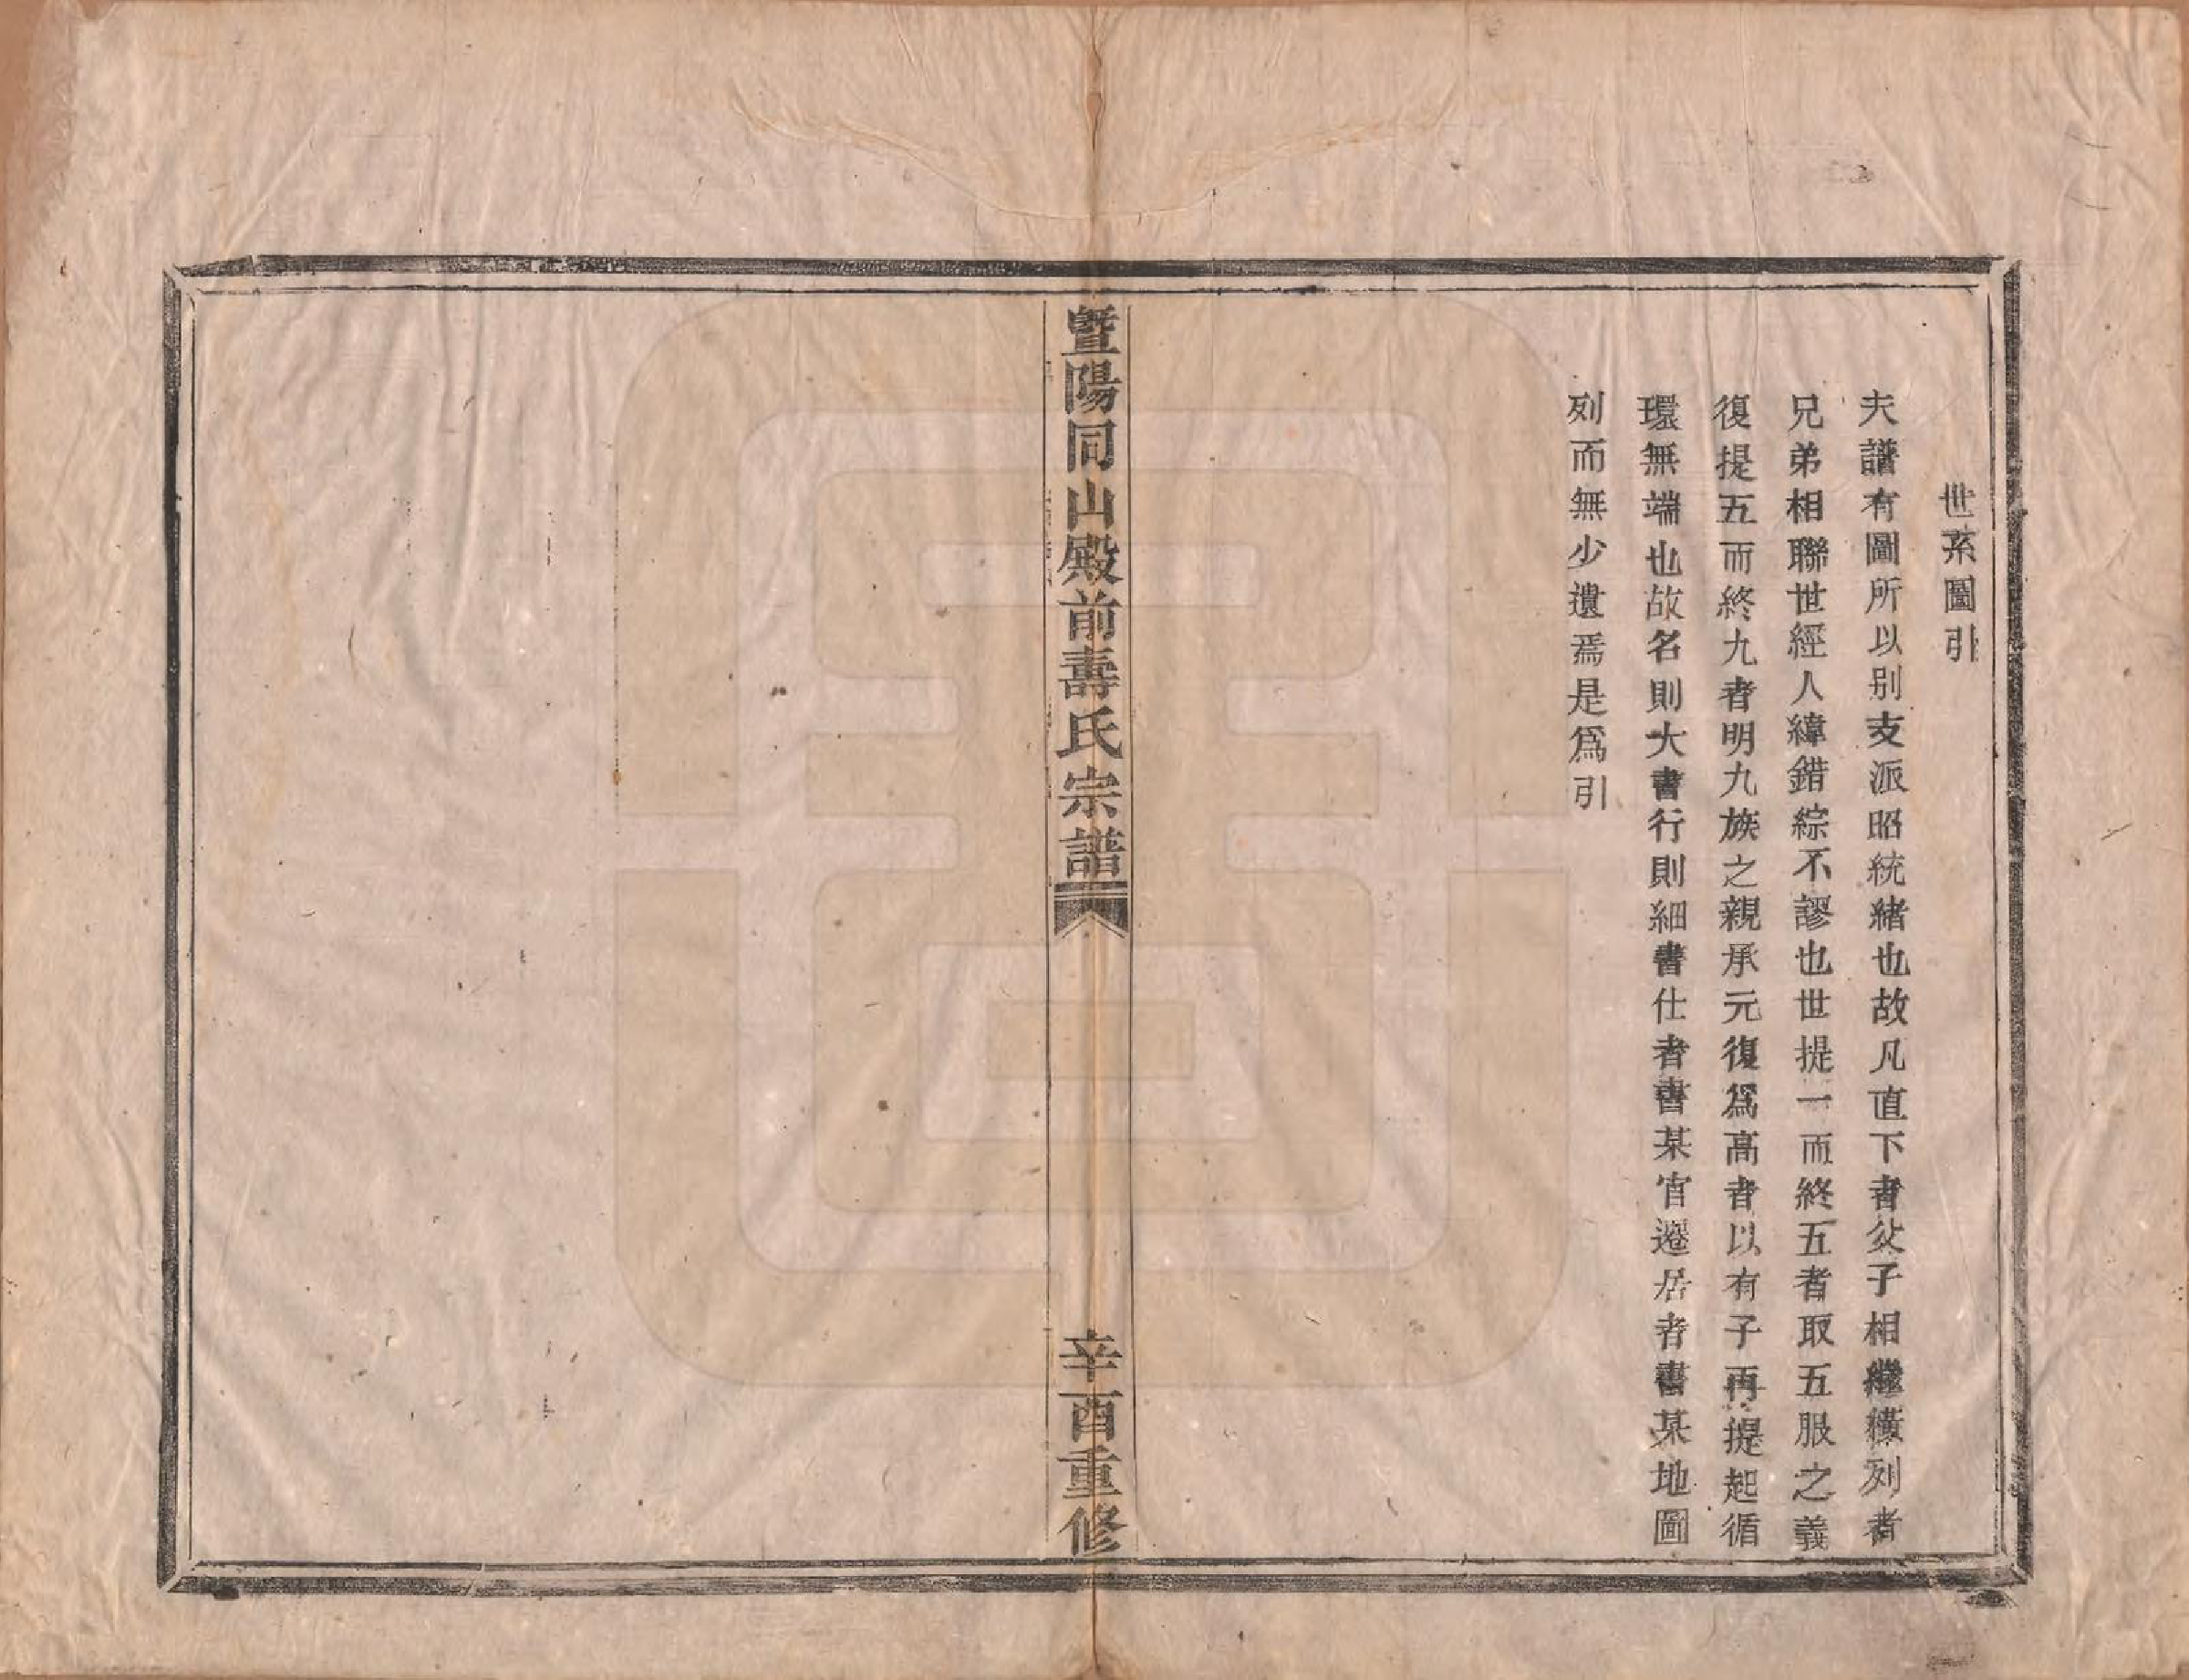 世系圖引
夫譜有圖所以別支派昭統緒也故凡直下者父子相繼橫列者
兄弟相聯世經人緯錯綜不謬也世提一而終五者取五服之義
復提五而終九者明九族之親承元復爲高者以有子再提起循
環無端也故名則大書行則細書仕者書某官遷居者書某地圖
列而無少遺焉是爲引
暨陽同山殿前壽氏宗譜
辛酉重修